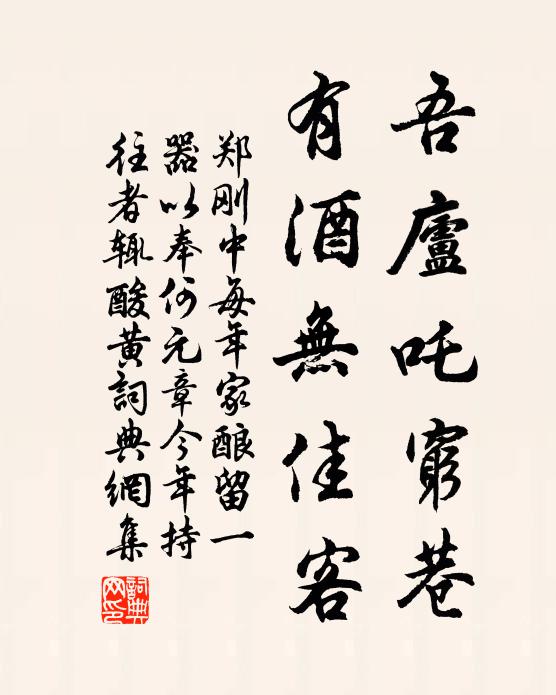 吾廬吒窮巷
有酒無佳客
郑刚中每年家酿留一
器以奉何元章今年持
往者辄酸黄詞典網集
詞典
网印